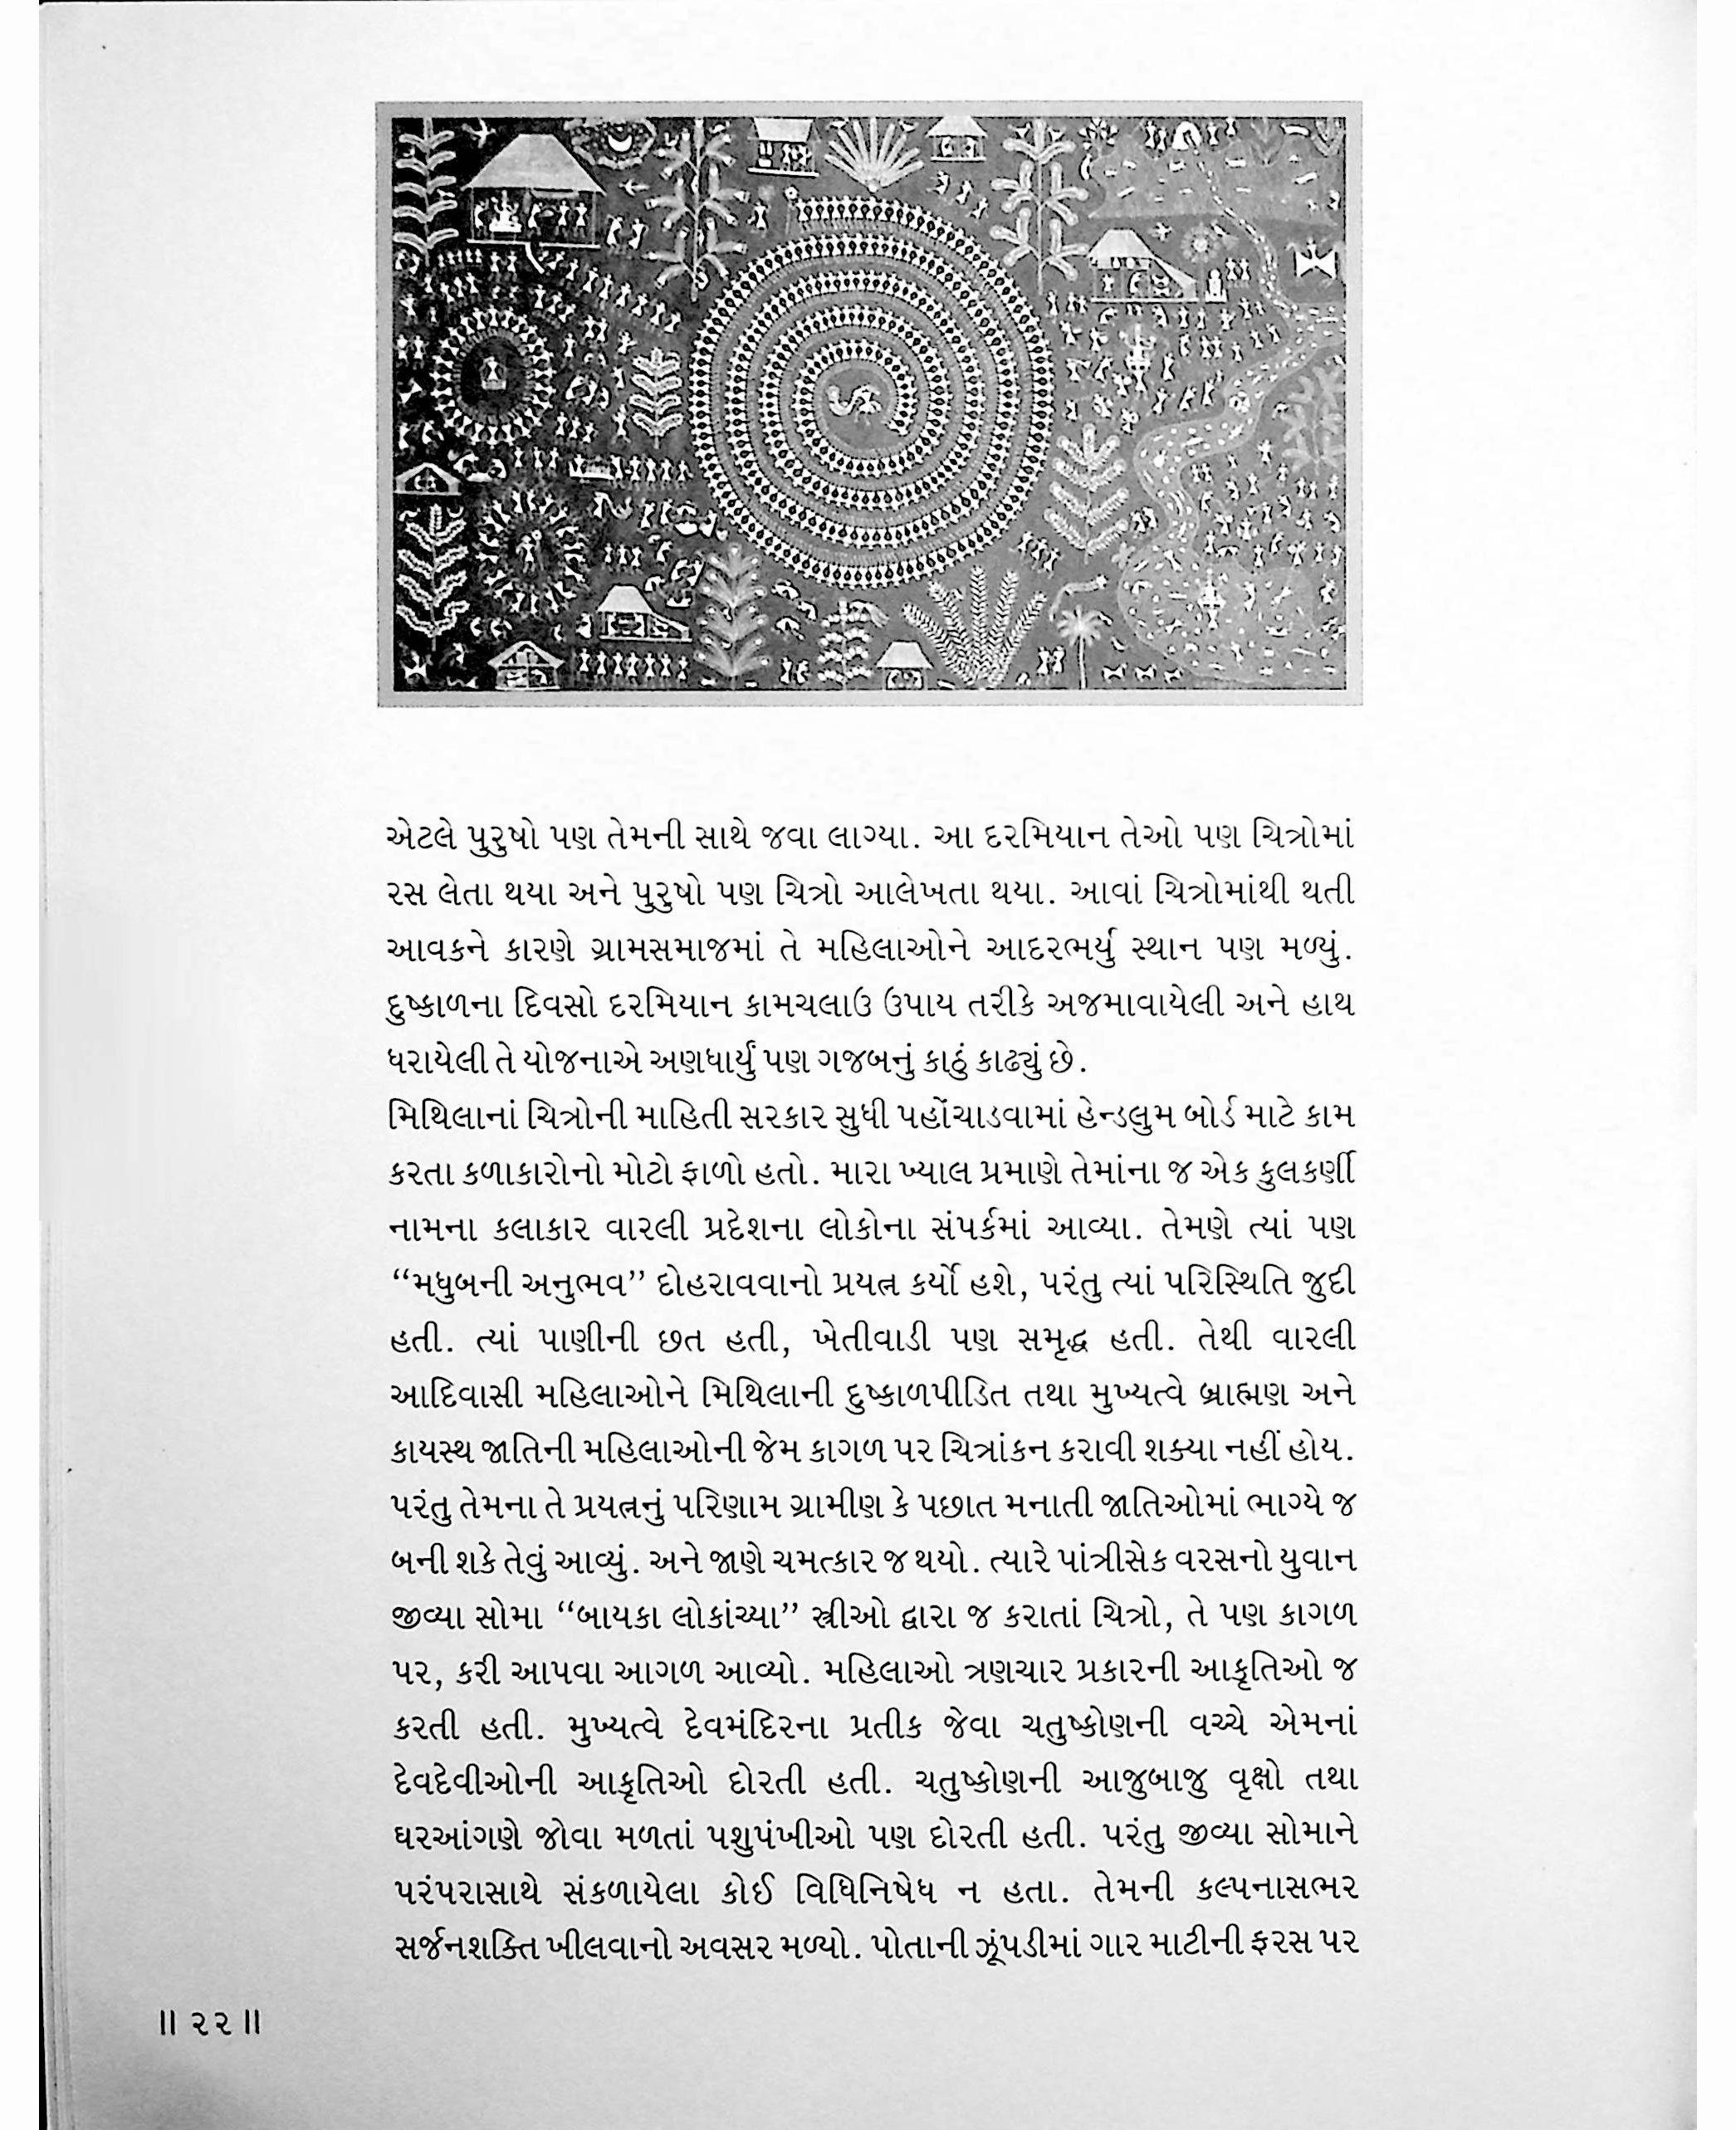 એટલે પુરુષો પણ તેમની સાથે જવા લાગ્યા. આ દરમિયાન તેઓ પણ ચિત્રોમાં
રસ લેતા થયા અને પુરુષો પણ ચિત્રો આલેખતા થયા. આવાં ચિત્રોમાંથી થતી
આવકને કારણે ગ્રામસમાજમાં તે મહિલાઓને આદરભર્યું સ્થાન પણ મળ્યું.
દુષ્કાળના દિવસો દરમિયાન કામચલાઉ ઉપાય તરીકે અજમાવાયેલી અને હાથ
ધરાયેલી તે યોજનાએ અણધાર્યું પણ ગજબનું કાઠું કાઢ્યું છે.
મિથિલાનાં ચિત્રોની માહિતી સરકાર સુધી પહોંચાડવામાં હેન્ડલુમ બોર્ડ માટે કામ
કરતા કળાકારોનો મોટો ફાળો હતો. મારા ખ્યાલ પ્રમાણે તેમાંના જ એક કુલકર્ણી
નામના કલાકાર વારલી પ્રદેશના લોકોના સંપર્કમાં આવ્યા. તેમણે ત્યાં પણ
“મધુબની અનુભવ” દોહરાવવાનો પ્રયત્ન કર્યો હશે, પરંતુ ત્યાં પરિસ્થિતિ જુદી
હતી. ત્યાં પાણીની છત હતી, ખેતીવાડી પણ સમૃદ્ધ હતી. તેથી વારલી
આદિવાસી મહિલાઓને મિથિલાની દુષ્કાળપીડિત તથા મુખ્યત્વે બ્રાહ્મણ અને
કાયસ્થ જાતિની મહિલાઓની જેમ કાગળ પર ચિત્રાંકન કરાવી શક્યા નહીં હોય.
પરંતુ તેમના તે પ્રયત્નનું પરિણામ ગ્રામીણ કે પછાત મનાતી જાતિઓમાં ભાગ્યે જ
બની શકે તેવું આવ્યું. અને જાણે ચમત્કાર જ થયો. ત્યારે પાંત્રીસેક વરસનો યુવાન
જીવ્યા સોમા “બાયકા લોકાંચ્યા” સ્ત્રીઓ દ્વારા જ કરાતાં ચિત્રો, તે પણ કાગળ
પર, કરી આપવા આગળ આવ્યો. મહિલાઓ ત્રણચાર પ્રકારની આકૃતિઓ જ
કરતી હતી. મુખ્યત્વે દેવમંદિરના પ્રતીક જેવા ચતુષ્કોણની વચ્ચે એમનાં
દેવદેવીઓની આકૃતિઓ દોરતી હતી. ચતુષ્કોણની આજુબાજુ વૃક્ષો તથા
ઘરઆંગણે જોવા મળતાં પશુપંખીઓ પણ દોરતી હતી. પરંતુ જીવ્યા સોમાને
પરંપરાસાથે સંકળાયેલા કોઈ વિધિનિષેધ ન હતા. તેમની કલ્પનાસભર
સર્જનશક્તિ ખીલવાનો અવસર મળ્યો. પોતાની ઝૂંપડીમાં ગાર માટીની ફરસ પર
॥ ૨૨ ॥